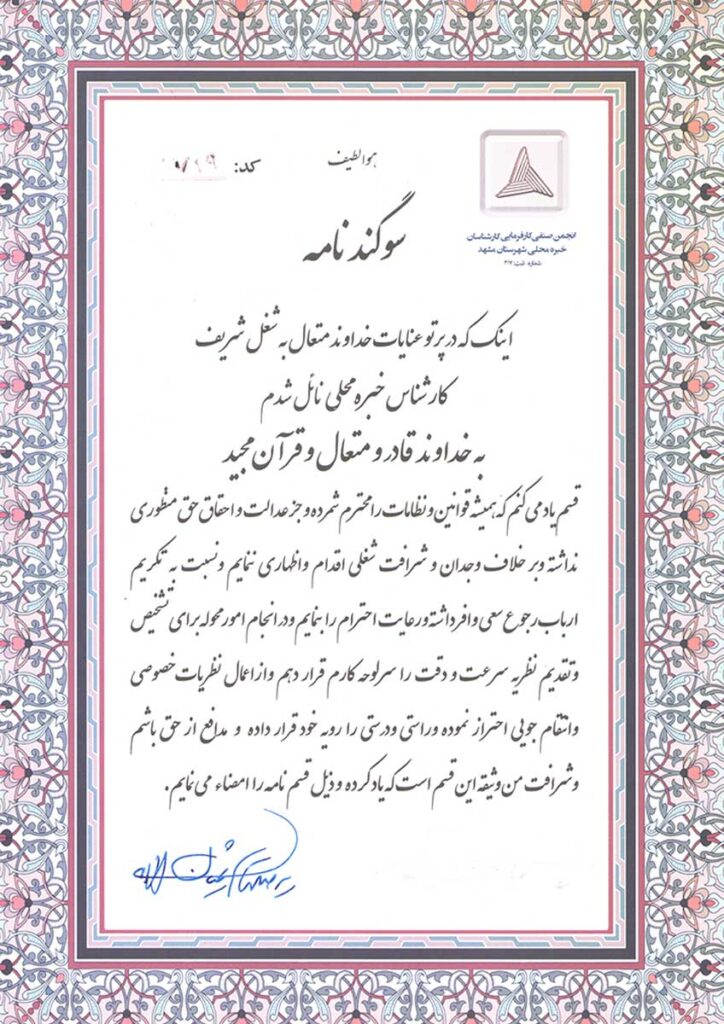 هوالطیف
کد:
انجمن صنفی کارفرمایی کارشناسان
خبره محلی شهرستان مشهد
شماره ثبت: ۴۱۷
سوگند نامه
اینک که در پرتو عنایات خداوند متعال به شغل شریف
کارشناس خبره محلی نائل شدم
به خداوند قادر و متعال و قرآن مجید
قسم یاد می کنم که همیشه قوانین و نظامات را محترم شمرده و جز عدالت و احقاق حق منظوری
نداشته و بر خلاف وجدان و شرافت شغلی اقدام و اظهاری ننمایم و نسبت به تکریم
ارباب رجوع سعی وافر داشته و رعایت احترام را بنمایم و در انجام امور محوله برای تشخیص
و تقدیم نظریه سرعت و دقت را سرلوحه کارم قرار دهم و از اعمال نظریات خصوصی
و انتقام جویی احتراز نموده و راستی و درستی را رویه خود قرار داده و مدافع از حق باشم
و شرافت من وثیقه این قسم است که یاد کرده و ذیل قسم نامه را امضاء می نمایم.